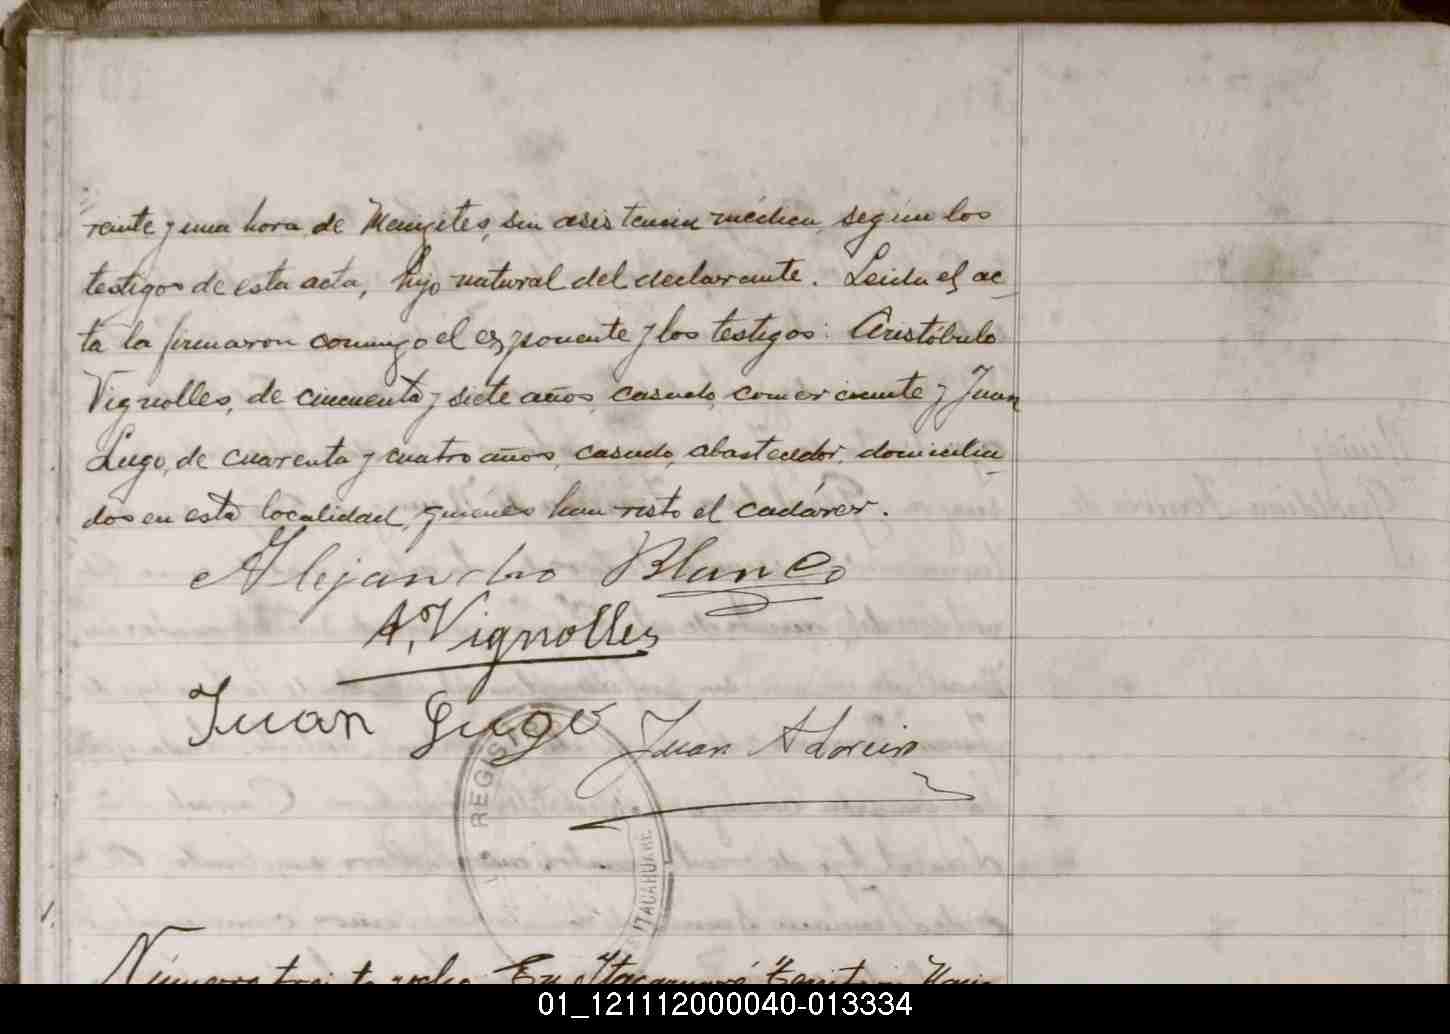 veinte y una hora, de Meningites, sin asistencia médica, según los
testigos de esta acta, hijo natural del declarante. Leida el ac-
ta la firmaron conmigo el exponente y los testigos: Aristóbulo
Vignolles, de cincuenta y siete años, casado, comerciante y Juan
Lugo, de cuarenta y cuatro años, casado, abastecedor, domicilia-
dos en esta localidad, quienes han visto el cadáver.
Alejandro Blanco
A. Vignolles
Juan Lugo Juan A Lorein
REGIST
ITACARUARE
Número treinta y ocho. En Itacaruaré Territorio
01_121112000040-013334